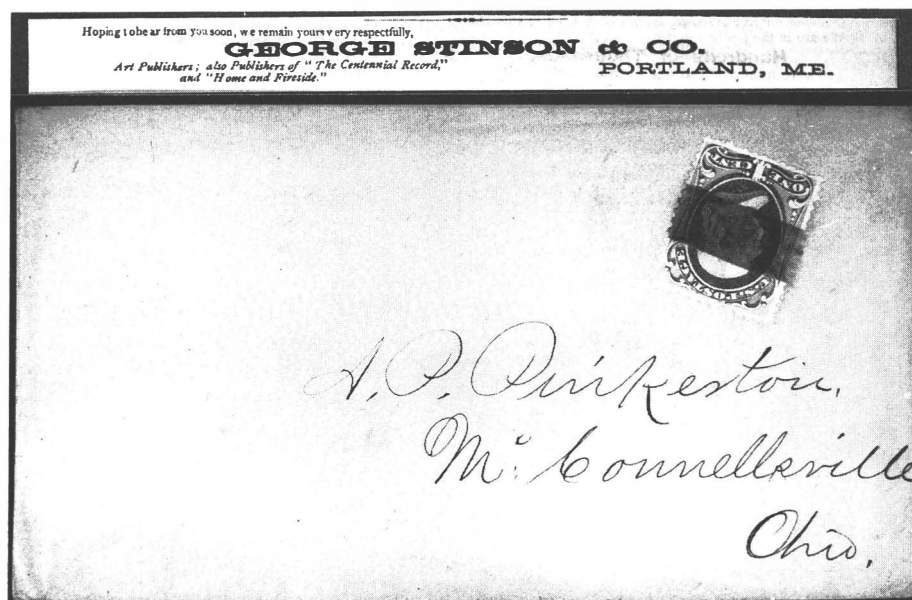 Hoping to hear from you soon, we remain yours very respectfully,
GEORGE STINSON & CO.
Art Publishers; also Publishers of "The Centennial Record,"
and "Home and Fireside."
PORTLAND, ME.
ONE CENT
A. P. Pinkerton,
Mc. Connellsville
Ohio.